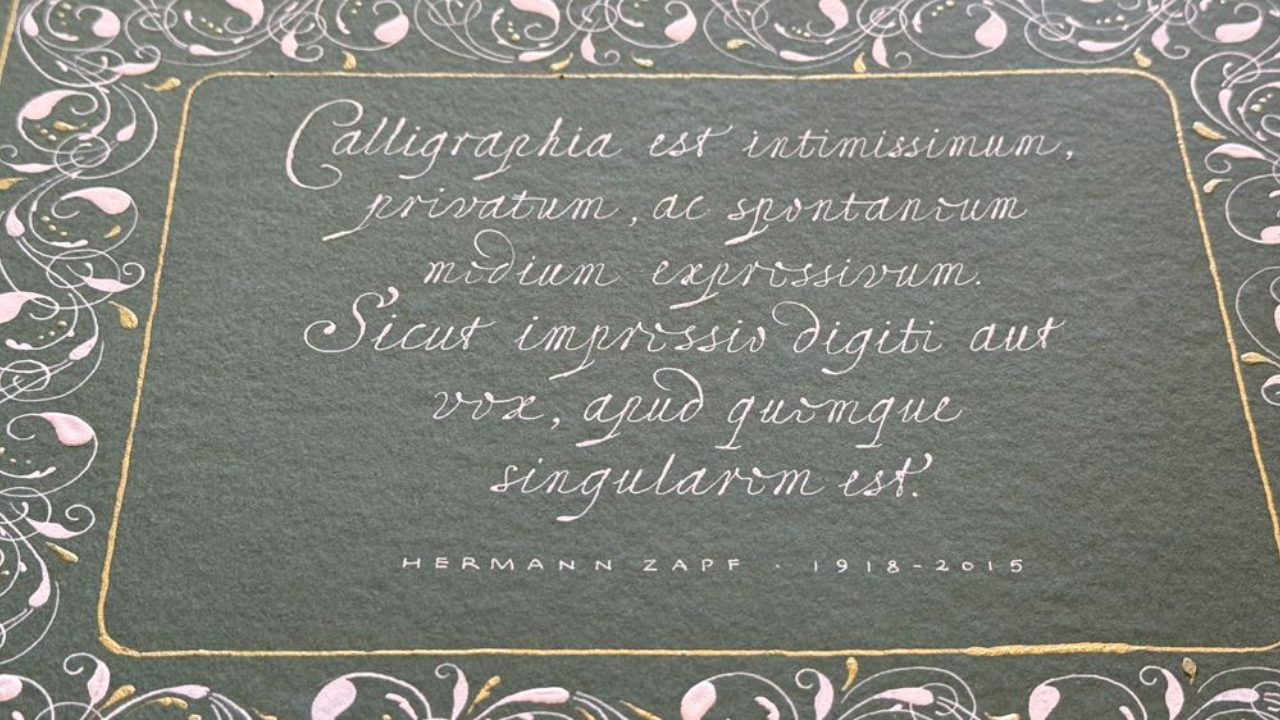 Calligraphia est intimissimum,
privatum, ac spontaneum
medium expressivum.
Sicut impressio digiti aut
vox, apud quemque
singularem est.
HERMANN ZAPF · 1918-2015